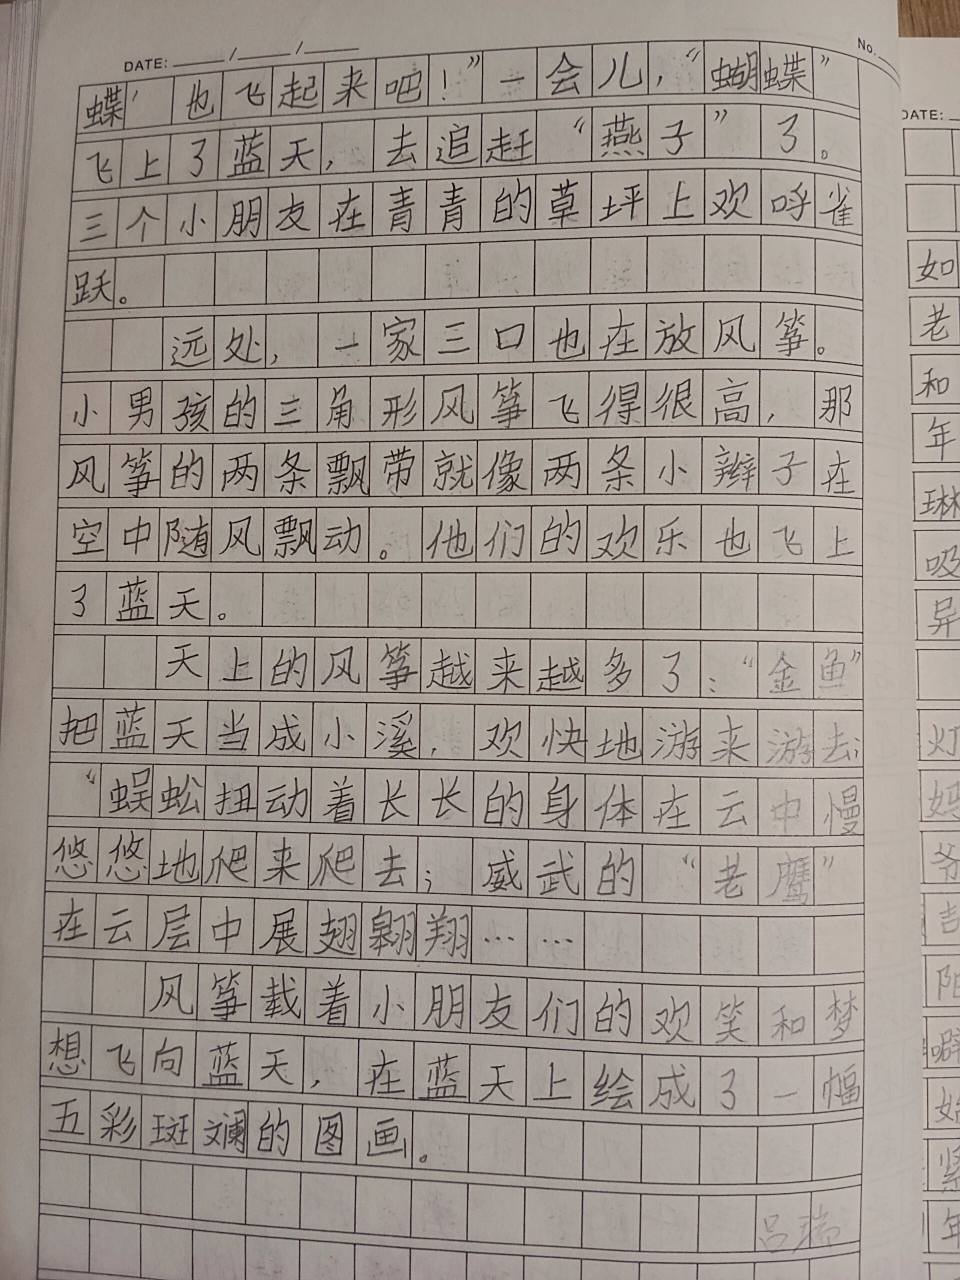 DATE: ____/____/____
No.
蝶’也飞起来吧！”一会儿，“蝴蝶”
飞上了蓝天，去追赶“燕子”了。
三个小朋友在青青的草坪上欢呼雀
跃。
远处，一家三口也在放风筝。
小男孩的三角形风筝飞得很高，那
风筝的两条飘带就像两条小辫子在
空中随风飘动。他们的欢乐也飞上
了蓝天。
天上的风筝越来越多了：“金鱼”
把蓝天当成小溪，欢快地游来游去；
“蜈蚣扭动着长长的身体在云中慢
悠悠地爬来爬去；威武的“老鹰”
在云层中展翅翱翔……
风筝载着小朋友们的欢笑和梦
想飞向蓝天，在蓝天上绘成了一幅
五彩斑斓的图画。
吕瑞
DATE:
如
老
和
年
琳
吸
异
灯
妈
爷
吉
阳
噼
始
紧
年